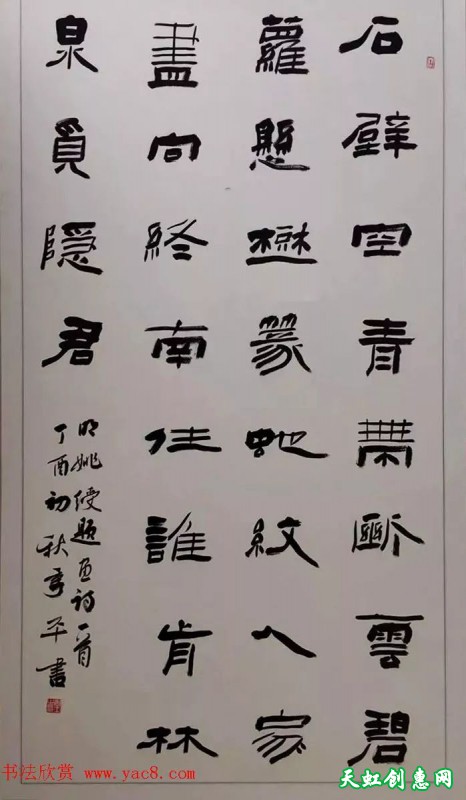 石壁空青帶斷雲碧
蘿懸樾篆虵紋人家
盡向終南住誰肯林
泉覓隱君
明姚綬題画詩一首
丁酉初秋平書
书法欣赏 www.yac8.com
天虹创惠网